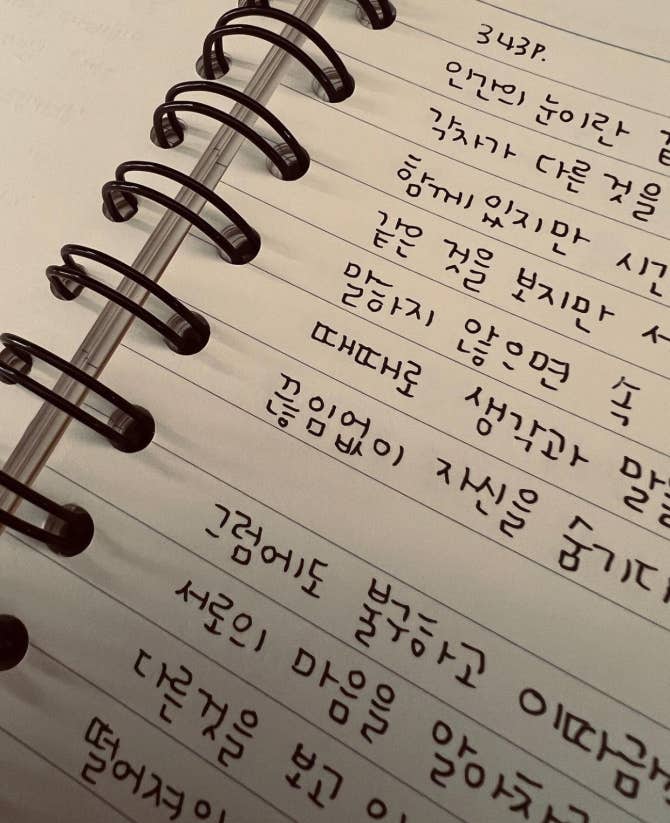 343P.
인간의 눈이란
각자가 다른 것을
함께 있지만 시간
같은 것을 보지만 서
말하지 않으면 속
때때로 생각과 말을
끊임없이 자신을 숨기다
그럼에도 불구하고 이따금
서로의 마음을 알아차리
다른것을 보고
떨어져